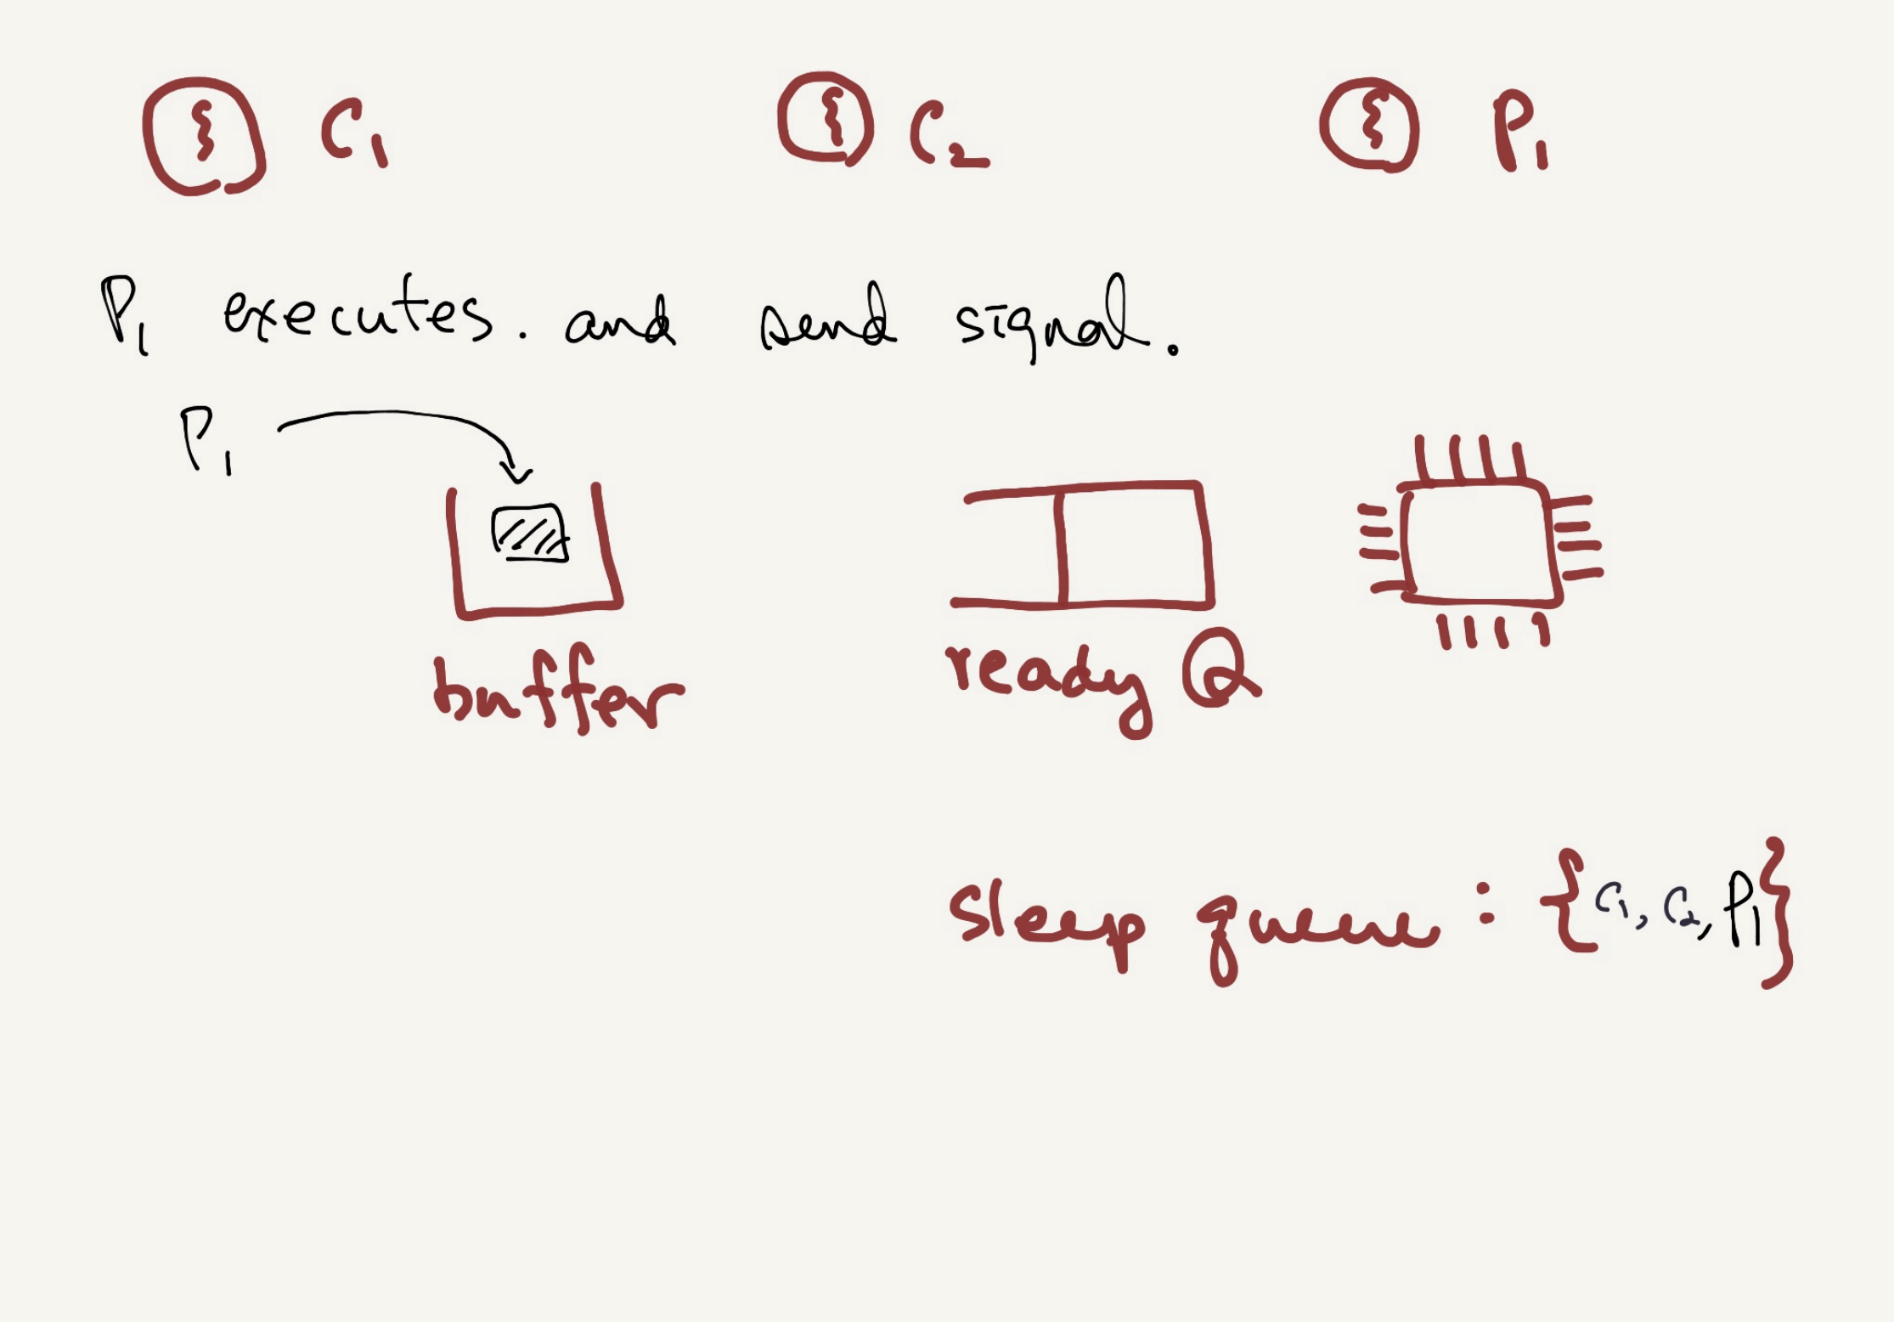 C1 C2 P1
P1 executes. and send signal.
P1
buffer
ready Q
sleep queue : {C1, C2, P1}